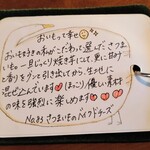 おいもって幸せ
おいもすきの私がこだわって選んださつま
いも一旦じっくり焼き芋にして、更に甘み
と香りをグンと引き出してから、生地に
混ぜ込んでいます ほっこり優しい素材
の味を強烈に楽しめます
No.85 さつまいものベイクドチーズ